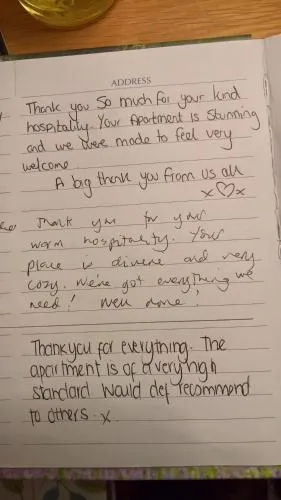 ADDRESS
Thank you so much for your kind
hospitality. Your Apartment is Stunning
and we were made to feel very
welcome
A big thank you from us all
x♡x
Thank you for your
warm hospitality. Your
place is divine and very
cozy. We've got everything we
need! Well done!
Thankyou for everything. The
apartment is of a very high
standard would def recommend
to others x